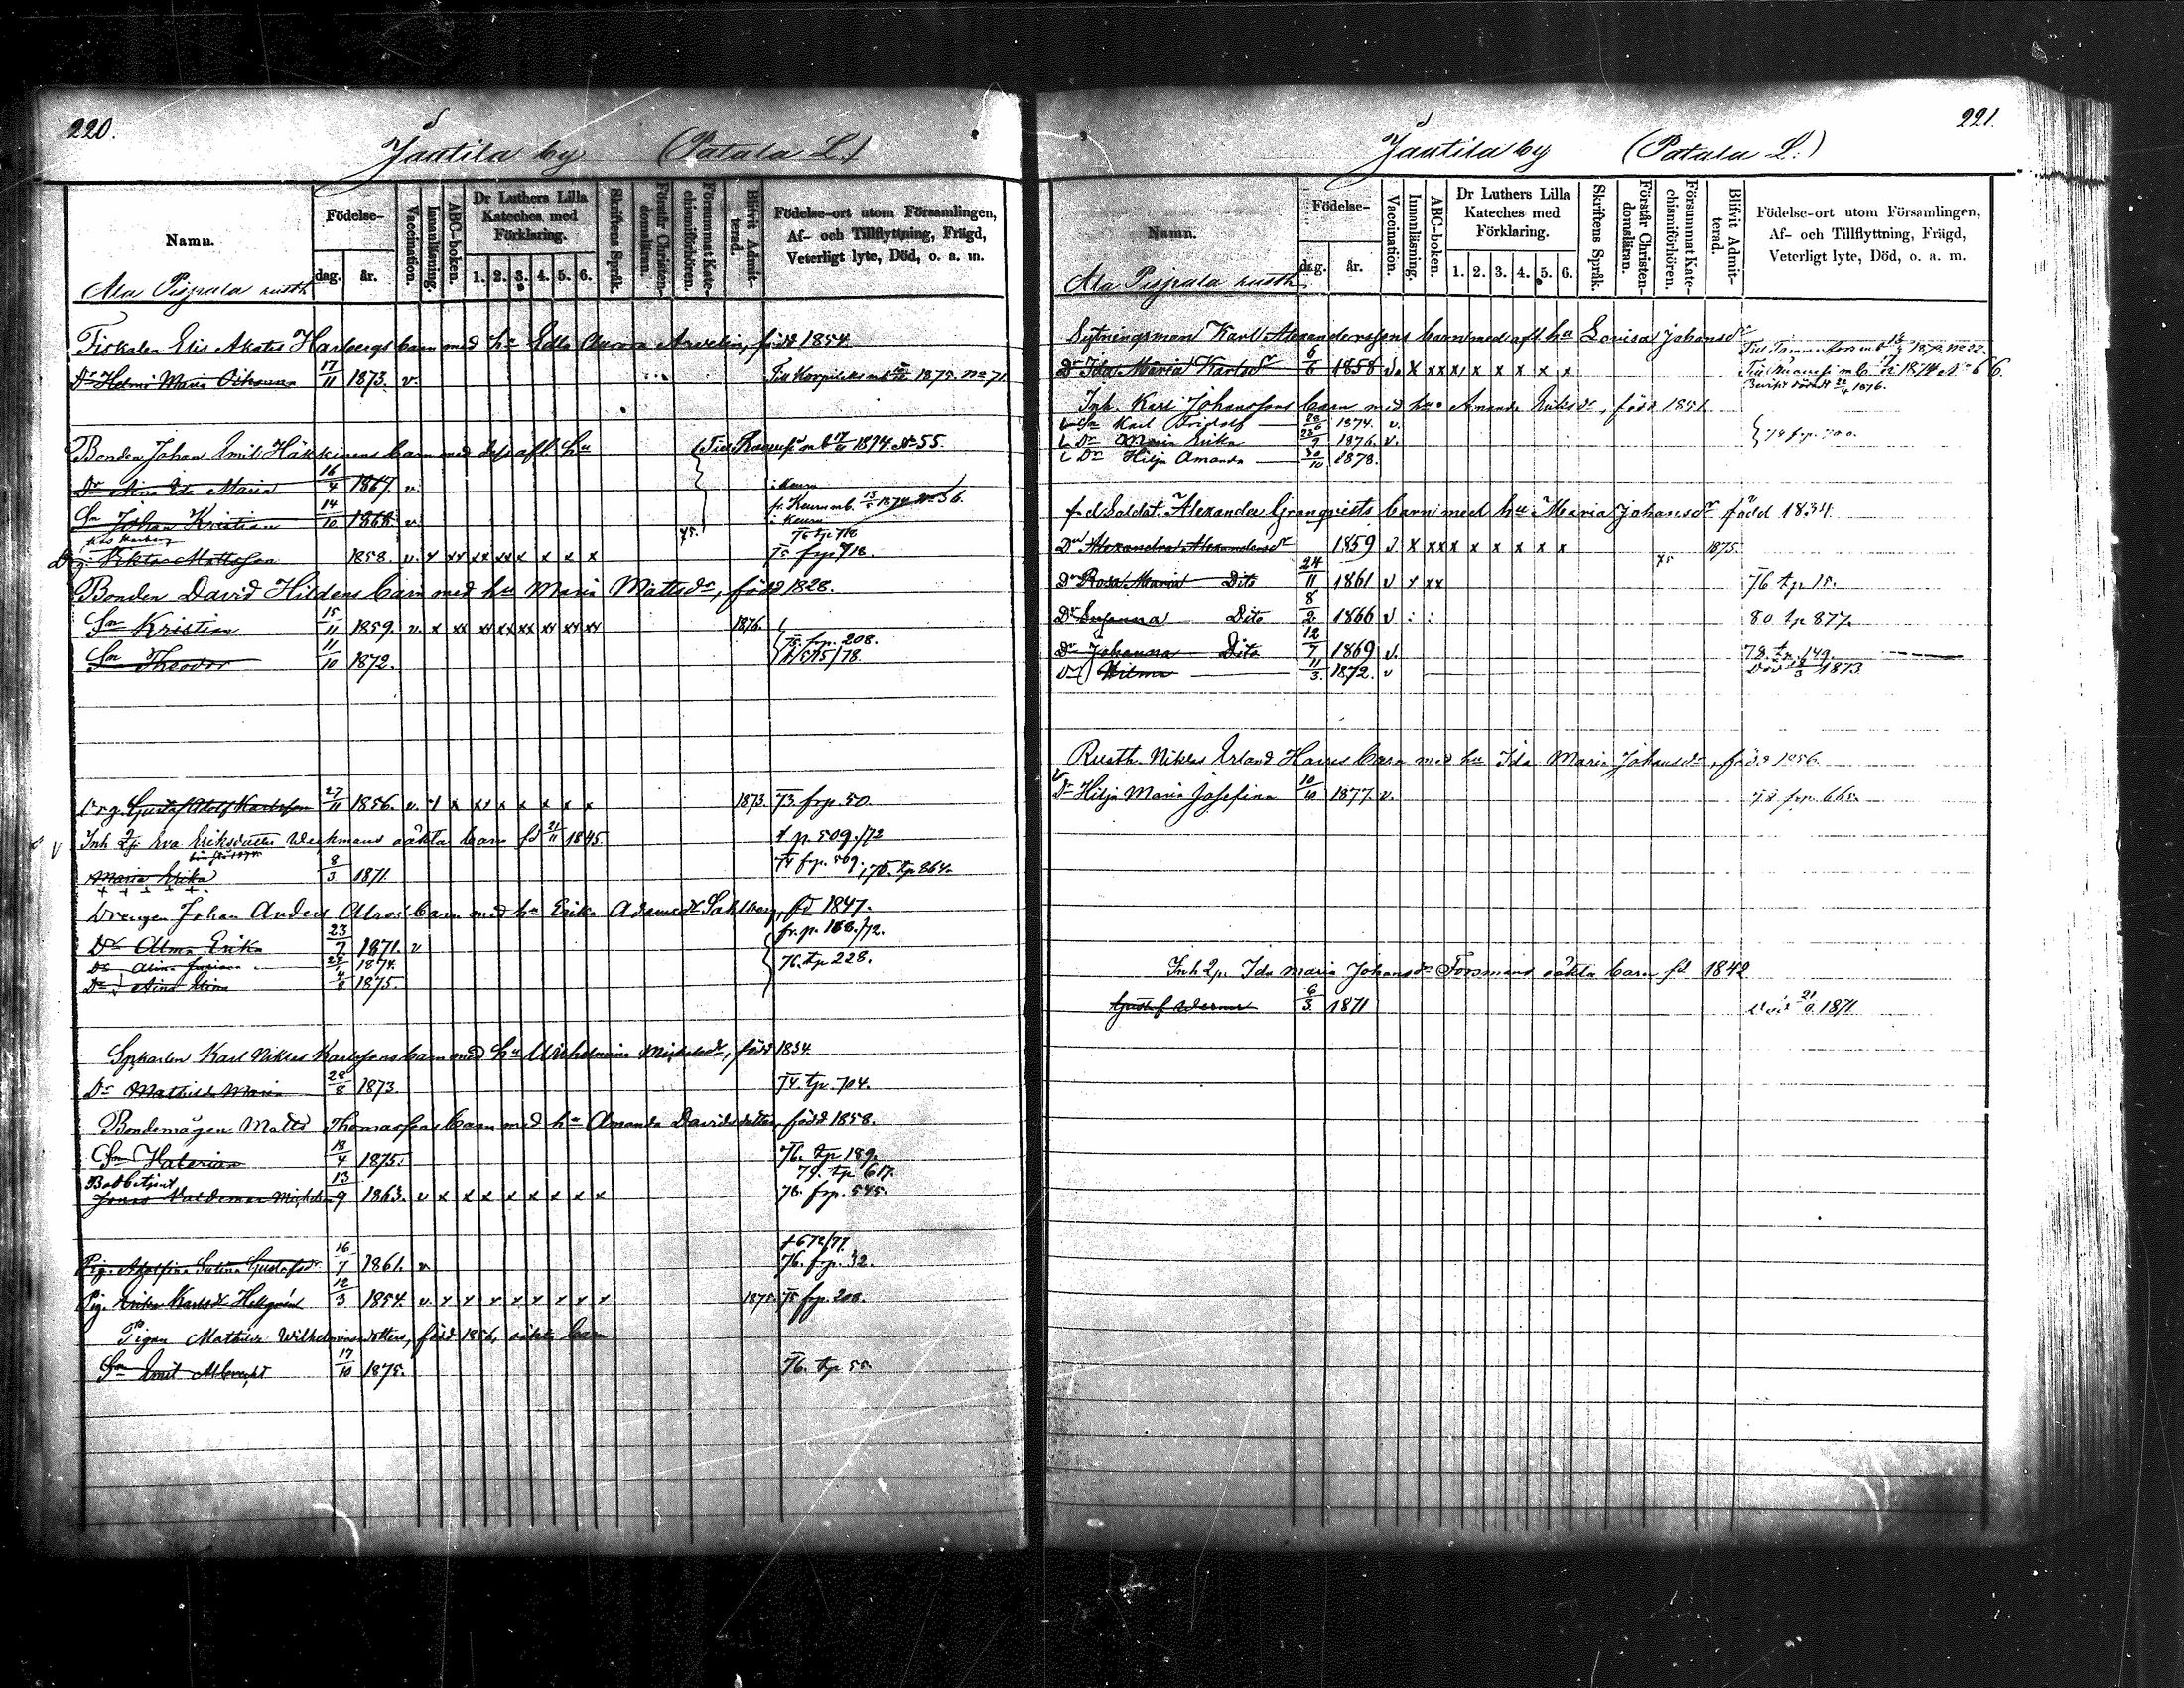 220.
Jaatila by (Patala L.)
Namn.
Födelse-
dag.
år.
Vaccination.
Innanläsning.
ABC-boken.
Dr Luthers Lilla Kateches med Förklaring.
1. 2. 3. 4. 5. 6.
Skriftens Språk.
Förstår Christendomsläran.
Försummat Katechismiförhören.
Blifvit Admitterad.
Födelse-ort utom Församlingen,
Af- och Tillflyttning, Frägd,
Veterligt lyte, Död, o. a. m.
Ala Pispala rusth
Fiskalen Elis Akates Harbergs barn med hu Edla Aurora Arvelin, född 1854.
Dr Helmi Maria 17/11 1873. v. 1875. No 71
Bonden Johan Emil Häkkinens barn med dess afl. hu 1874 No 55.
Dr Aina Ida Maria 16/4 1867. v.
fr. Keuru mb. 13/5 1874 No 36.
Sn Johan Kristian 14/10 1868 v. i Keuru
75. 76 tp 718
Viktor Mattsson 1858. v. x xx xx xx x x x x 75 frp 718.
Bonden David Hildens barn med hu Maria Mattsdr, född 1828.
Sn Kristian 15/11 1859. v. x xx xx xx xx xx xx xx 1876
75 frp. 208.
Sn Theodor 11/10 1872.
Drg. Gustaf Adolf Karlsson 27/11 1856. v. x x xx x x x x x 1873. 73 frp. 50.
Inh Eva Eriksdotter Weckmans oäkta barn fd 21/11 1845. f p. 509./72
Maria Erika 8/3 1871 74 frp. 509. 78. tp 864.
Drengen Johan Anders Alros barn med hu Erika Adamsdr Sahlberg, fd 1847.
fr. p. 188./72.
Dr Alma Erika 23/7 1871. v
76. tp 228.
Dr Alina 1874.
Dr Aina Elina 4/8 1875.
Karl Niklas Karlssons barn med hu Wilhelmina född 1834.
Dr Mathilda Maria 28/8 1873. 74. tp. 704.
Bondemågen Matts Thomassons barn med hu Amanda Davidsdotter, född 1858.
Sn 13/4 1875. 76. tp 189.
79. tp 617.
Jonas Valdemar 13/9 1863. v x x x x x x x x 76. frp. 545.
+672/77.
Pig. Adolfina Gustafsdr 16/7 1861. v. 76. frp. 32.
Pig. Erika Karlsdr Hellgrén 12/3 1854. v. x x x x x x x x 1875. 75 frp. 208.
Pigan Mathilda Wilhelminasdotters, född 1856, oäkta barn
Sn Emil Albrecht 17/10 1875. 76. tp 55.
221.
Jaatila by (Patala L.)
Namn.
Födelse-
dag.
år.
Vaccination.
Innanläsning.
ABC-boken.
Dr Luthers Lilla Kateches med Förklaring.
1. 2. 3. 4. 5. 6.
Skriftens Språk.
Förstår Christendomsläran.
Försummat Katechismiförhören.
Blifvit Admitterad.
Födelse-ort utom Församlingen,
Af- och Tillflyttning, Frägd,
Veterligt lyte, Död, o. a. m.
Ala Pispala rusth
Sytningsman Karl Alexanderssons barn med afl. hu Lovisa Johansdr
Dr Ida Maria Karlsdr 6/6 1858 v. x xx x x x x x x
Inh. Karl Johanssons barn med hu Amanda Eriksdr, född 1851
Sn Karl Fridolf 1874. v.
Dr Maria Erika 1876. v.
Dr Hilja Amanda 30/10 1878.
f.d. Soldat. Alexander Granqvists barn med hu Maria Johansdr född 1834.
Dr Alexandra Alexandersdr 1859 v x xx x x x x x x 75 1875.
Dr Rosa Maria Dito 24/11 1861 v x xx 76 tp 15.
Dr Susanna Dito 8/2 1866 v : : 80 tp 877.
Dr Johanna Dito 12/7 1869 v. 78. tp. 149.
Dr Hilma 11/3 1872. v Död 1873.
Rusth. Niklas Erland Harres barn med hu Ida Maria Johansdr, född 1856.
Dr Hilja Maria Josefina 10/10 1877. v.
Inh Ida Maria Johansdr Forsmans oäkta barn fd 1842
Gustaf Werner 6/3 1871 1871